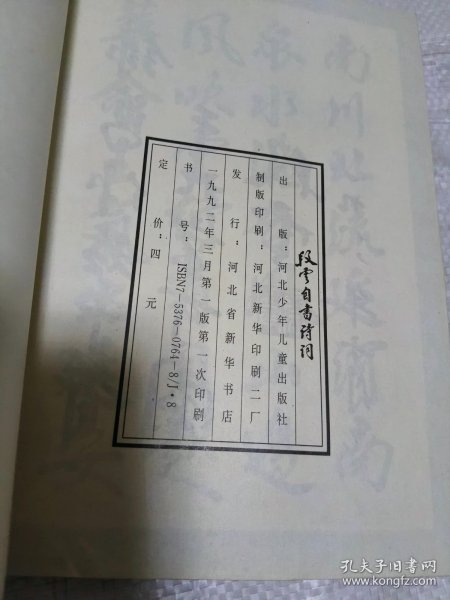 段云自书诗词
出版：河北少年儿童出版社
制版印刷：河北新华印刷二厂
发行：河北省新华书店
一九九二年三月第一版第一次印刷
书号：ISBN7-5376-0764-8/J·8
定价：四元
孔夫子旧书网
www.kongfz.com